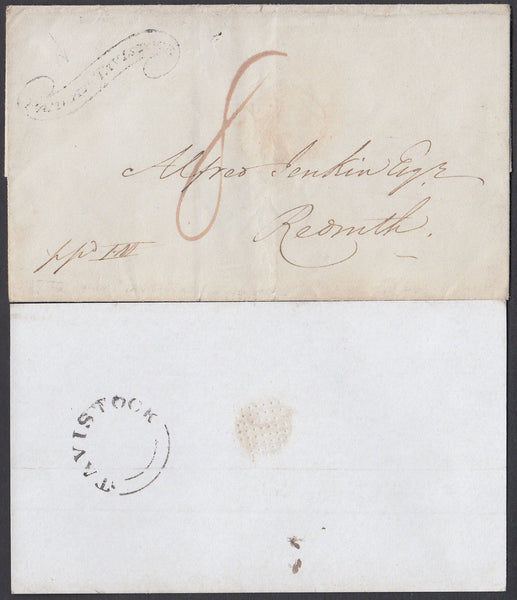 8
Alfred Jenkin Esqr
Redruth.
ppd
TAVISTOCK